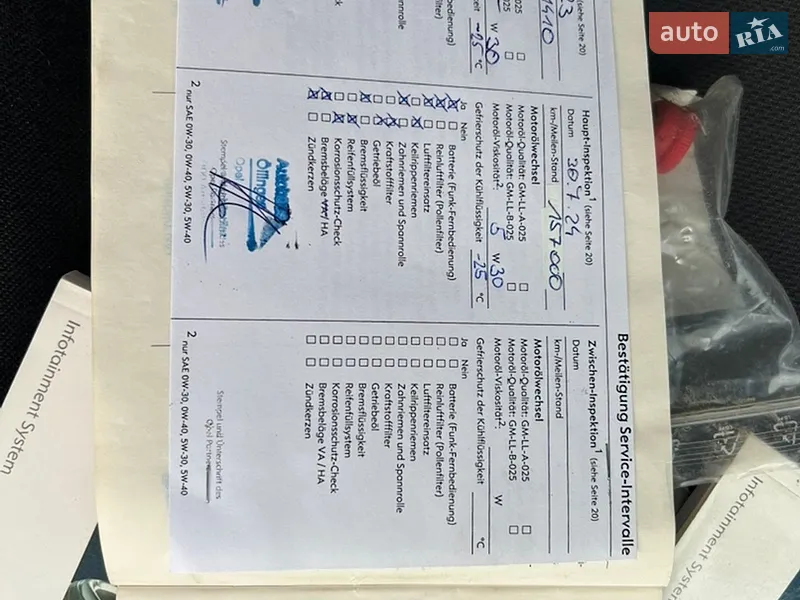 auto RIA.com
Bestätigung Service-Intervalle
(siehe Seite 20)
W 30
-25 °C
Haupt-Inspektion¹ (siehe Seite 20)
Datum 30.7.24
km-/Meilen-Stand 157000
Motorölwechsel
Motoröl-Qualität: GM-LL-A-025
Motoröl-Qualität: GM-LL-B-025
Motoröl-Viskosität²: 5 W 30
Gefrierschutz der Kühlflüssigkeit -25 °C
Ja Nein
Batterie (Funk-Fernbedienung)
Reinluftfilter (Pollenfilter)
Luftfiltereinsatz
Keilrippenriemen
Zahnriemen und Spannrolle
Kraftstofffilter
Getriebeöl
Bremsflüssigkeit
Reifenfüllsystem
Korrosionsschutz-Check
Bremsbeläge VA / HA
Zündkerzen
2 nur SAE 0W-30, 0W-40, 5W-30, 5W-40
Zwischen-Inspektion¹ (siehe Seite 20)
Datum
km-/Meilen-Stand
Motorölwechsel
Motoröl-Qualität: GM-LL-A-025
Motoröl-Qualität: GM-LL-B-025
Motoröl-Viskosität²: W
Gefrierschutz der Kühlflüssigkeit °C
Ja Nein
Batterie (Funk-Fernbedienung)
Reinluftfilter (Pollenfilter)
Luftfiltereinsatz
Keilrippenriemen
Zahnriemen und Spannrolle
Kraftstofffilter
Getriebeöl
Bremsflüssigkeit
Reifenfüllsystem
Korrosionsschutz-Check
Bremsbeläge VA / HA
Zündkerzen
Stempel und Unterschrift des
Opel Partners
2 nur SAE 0W-30, 0W-40, 5W-30, 5W-40
Infotainment System
Infotainment System